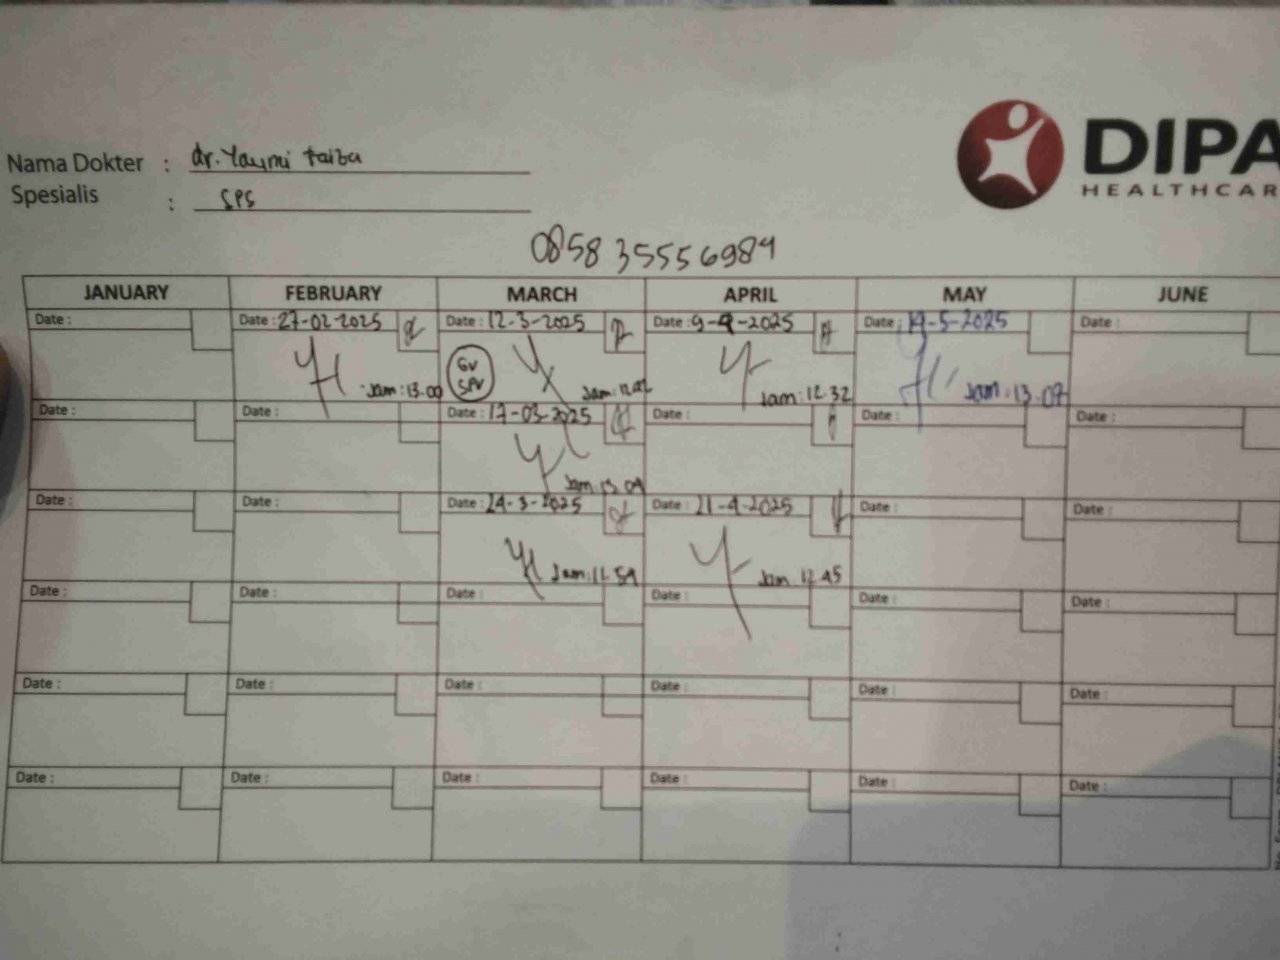 DIPA
HEALTHCAR
Nama Dokter : dr. Yaymi Faiza
Spesialis : SPS
0858 35556984
JANUARY FEBRUARY MARCH APRIL MAY JUNE
Date : Date : 27-02-2025 Date : 12-3-2025 Date : 9-4-2025 Date : 19-5-2025 Date :
Jam : 13.00 GV SPV Jam : Jam : 12.32 Jam : 13.07
Date : Date : Date : 17-03-2025 Date : Date : Date :
Jam 13.09
Date : Date : Date : 24-3-2025 Date : 21-4-2025 Date : Date :
Jam : 12.59 Jam 12.45
Date : Date : Date : Date : Date : Date :
Date : Date : Date : Date : Date : Date :
Date : Date : Date : Date : Date : Date :